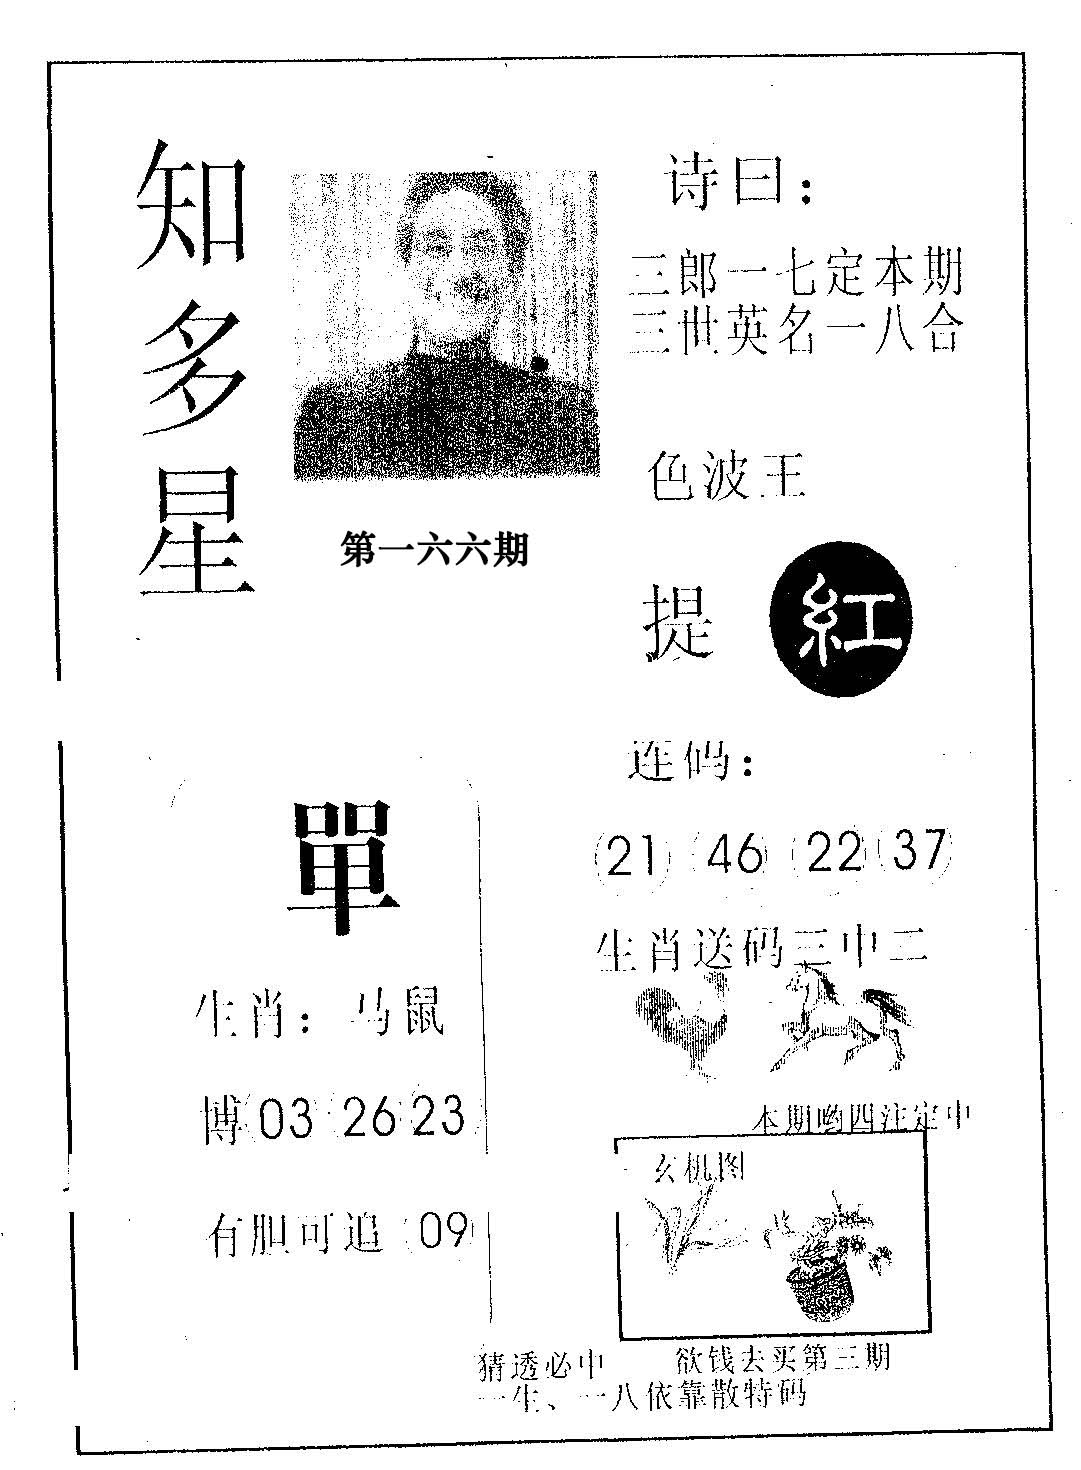 知多星
诗曰：
三郎一七定本期
三世英名一八合
色波王
第一六六期
提 紅
连码：
21 46 22 37
單
生肖送码三中二
生肖：马鼠
博 03 26 23
本期哟四注定中
玄机图
有胆可追 09
猜透必中 欲钱去买第三期
一生、一八依靠散特码